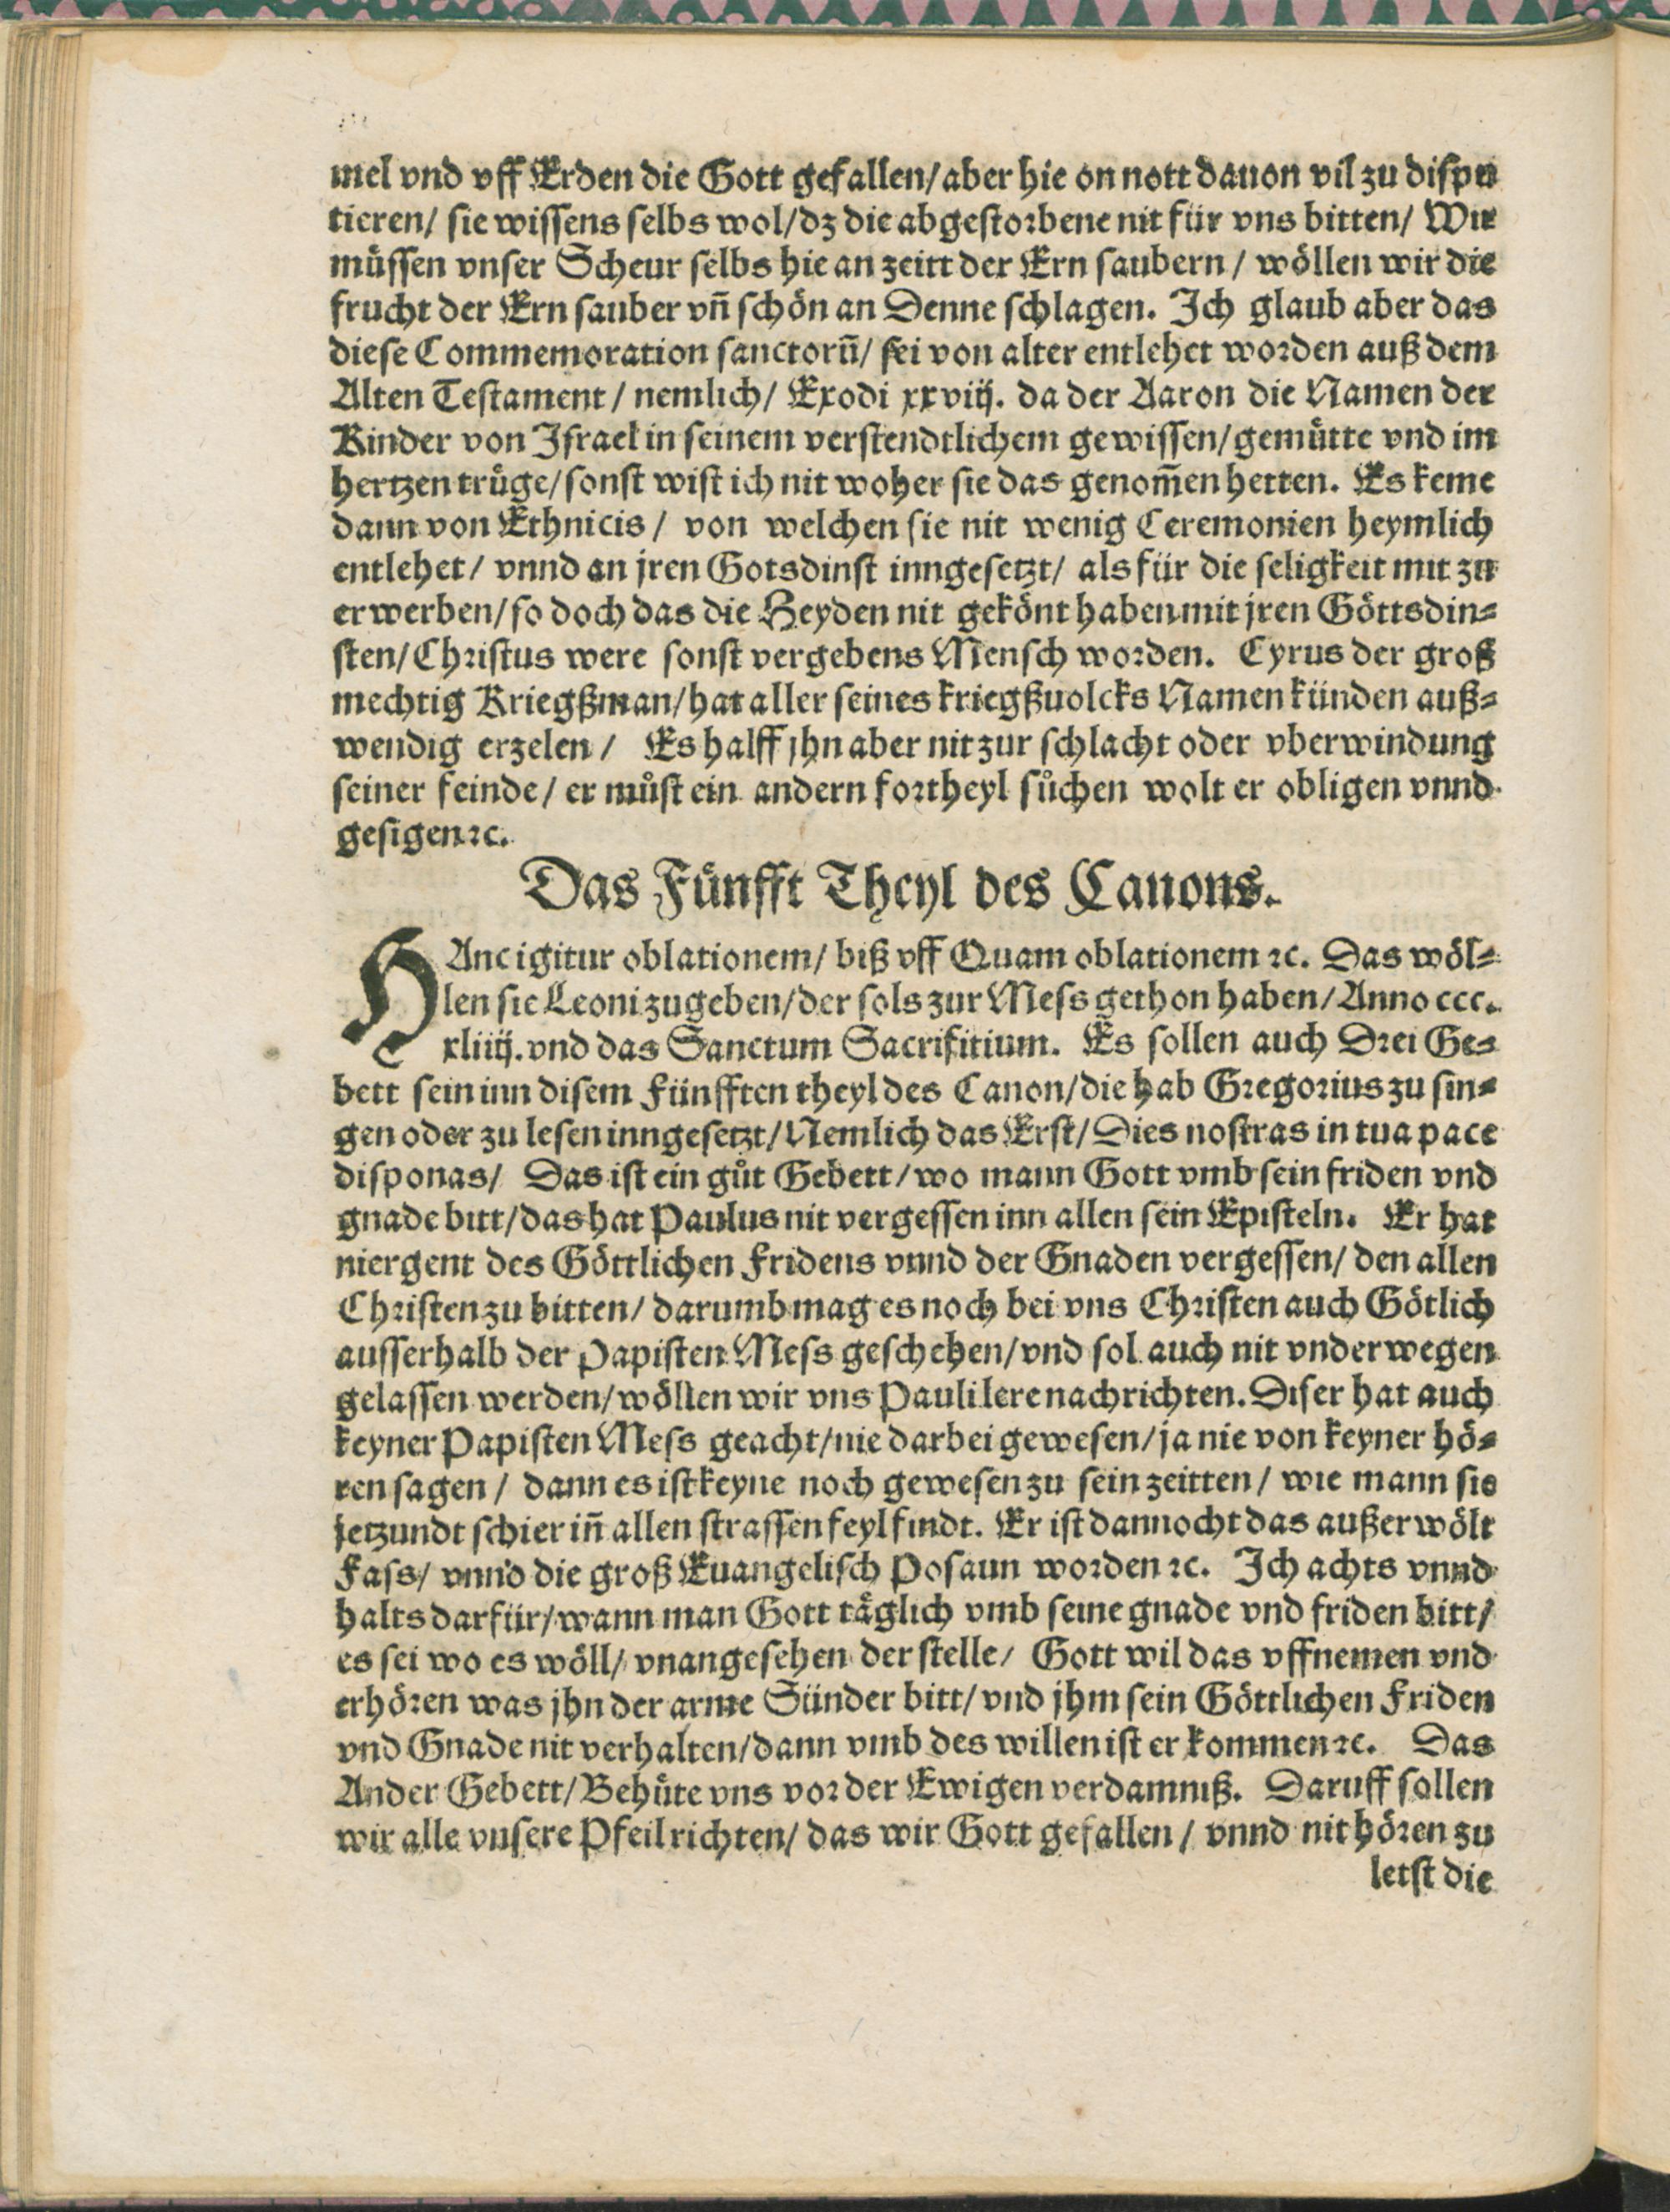 mel vnd vff Erden die Gott gefallen/ aber hie on nott dauon vil zu dispu
tieren/ sie wissens selbs wol/ dz die abgestorbene nit für vns bitten/ Wir
müssen vnser Scheur selbs hie an zeitt der Ern saubern / wöllen wir die
frucht der Ern sauber vñ schön an Denne schlagen. Ich glaub aber das
diese Commemoration sanctorũ/ sei von alter entlehet worden auß dem
Alten Testament / nemlich/ Exodi xxviij. da der Aaron die Namen der
Kinder von Israel in seinem verstendtlichem gewissen/ gemütte vnd im
hertzen trüge/ sonst wist ich nit woher sie das genom̃en hetten. Es keme
dann von Ethnicis / von welchen sie nit wenig Ceremonien heymlich
entlehet/ vnnd an jren Gotsdinst inngesetzt/ als für die seligkeit mit zu
erwerben/ so doch das die Heyden nit gekönt haben mit jren Göttsdin⸗
sten/ Christus were sonst vergebens Mensch worden. Cyrus der groß
mechtig Kriegßman/ hat aller seines kriegßuolcks Namen künden auß⸗
wendig erzelen / Es halff jhn aber nit zur schlacht oder vberwindung
seiner feinde/ er můst ein andern fortheyl sůchen wolt er obligen vnnd
gesigen ꝛc.
Das Fünfft Theyl des Canons.
HAnc igitur oblationem/ biß vff Quam oblationem ꝛc. Das wöl⸗
len sie Leoni zugeben/ der sols zur Mess gethon haben/ Anno ccc.
xliiij. vnd das Sanctum Sacrifitium. Es sollen auch Drei Ge⸗
bett sein inn disem Fünfften theyl des Canon/ die hab Gregorius zu sin⸗
gen oder zu lesen inngesetzt/ Nemlich das Erst/ Dies nostras in tua pace
disponas/ Das ist ein gůt Gebett/ wo mann Gott vmb sein friden vnd
gnade bitt/ das hat Paulus nit vergessen inn allen sein Episteln. Er hat
niergent des Göttlichen Fridens vnnd der Gnaden vergessen/ den allen
Christen zu bitten/ darumb mag es noch bei vns Christen auch Götlich
ausserhalb der Papisten Mess geschehen/ vnd sol auch nit vnderwegen
gelassen werden/ wöllen wir vns Pauli lere nachrichten. Diser hat auch
keyner Papisten Mess geacht/ nie darbei gewesen/ ja nie von keyner hö⸗
ren sagen / dann es ist keyne noch gewesen zu sein zeitten / wie mann sie
jetzundt schier iñ allen strassen feyl findt. Er ist dannocht das außerwölt
Fass/ vnnd die groß Euangelisch Posaun worden ꝛc. Ich achts vnnd
halts darfür/ wann man Gott täglich vmb seine gnade vnd friden bitt/
es sei wo es wöll/ vnangesehen der stelle/ Gott wil das vffnemen vnd
erhören was jhn der arme Sünder bitt/ vnd jhm sein Göttlichen Friden
vnd Gnade nit verhalten/ dann vmb des willen ist er kommen ꝛc. Das
Ander Gebett/ Behüte vns vor der Ewigen verdamniß. Daruff sollen
wir alle vnsere Pfeil richten/ das wir Gott gefallen / vnnd nit hören zu
letst die